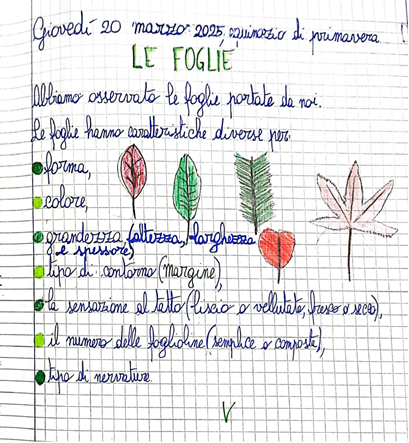 Giovedì 20 marzo 2025, equinozio di primavera
LE FOGLIE
Abbiamo osservato le foglie portate da noi.
Le foglie hanno caratteristiche diverse per:
forma,
colore,
grandezza, (altezza, larghezza
e spessore)
tipo di contorno (margine),
la sensazione al tatto (liscio o vellutato, fresco o secco),
il numero delle foglioline (semplice o composta),
tipo di nervature
V